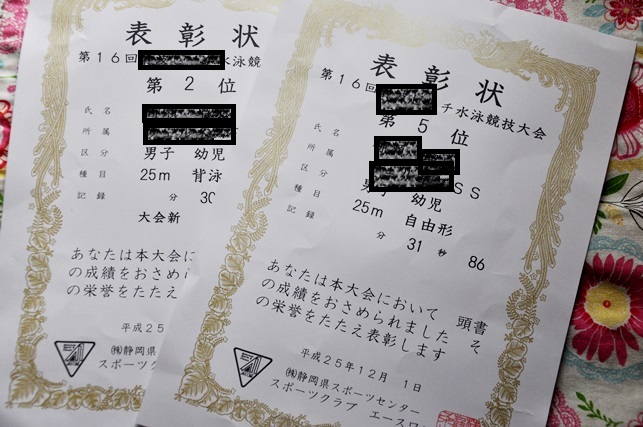 表彰状
第16回 水泳競
第2位
氏名
所属
区分 男子 幼児
種目 25m 背泳
記録 分 30
大会新
あなたは本大会
の成績をおさめら
の栄誉をたたえ
平成25
㈱静岡県スポーツ
スポーツク
表彰状
第16回 チ水泳競技大会
第5位
氏名
所属 SS
区分 男子 幼児
種目 25m 自由形
記録 分 31秒 86
あなたは本大会において 頭書
の成績をおさめられました そ
の栄誉をたたえ表彰します
平成25年12月 1日
㈱静岡県スポーツセンター
スポーツクラブ エースワ